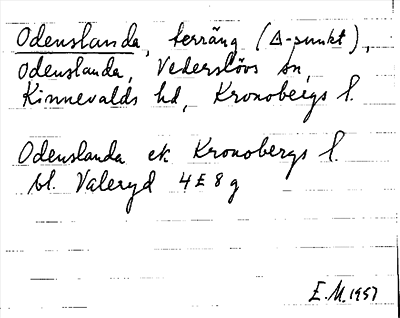 Odenslanda, terräng (Δ-punkt),
Odenslanda, Vederslövs sn,
Kinnevalds hd, Kronobergs l.
Odenslanda ek. Kronobergs l.
bl. Valeryd 4E8g
E.M. 1957